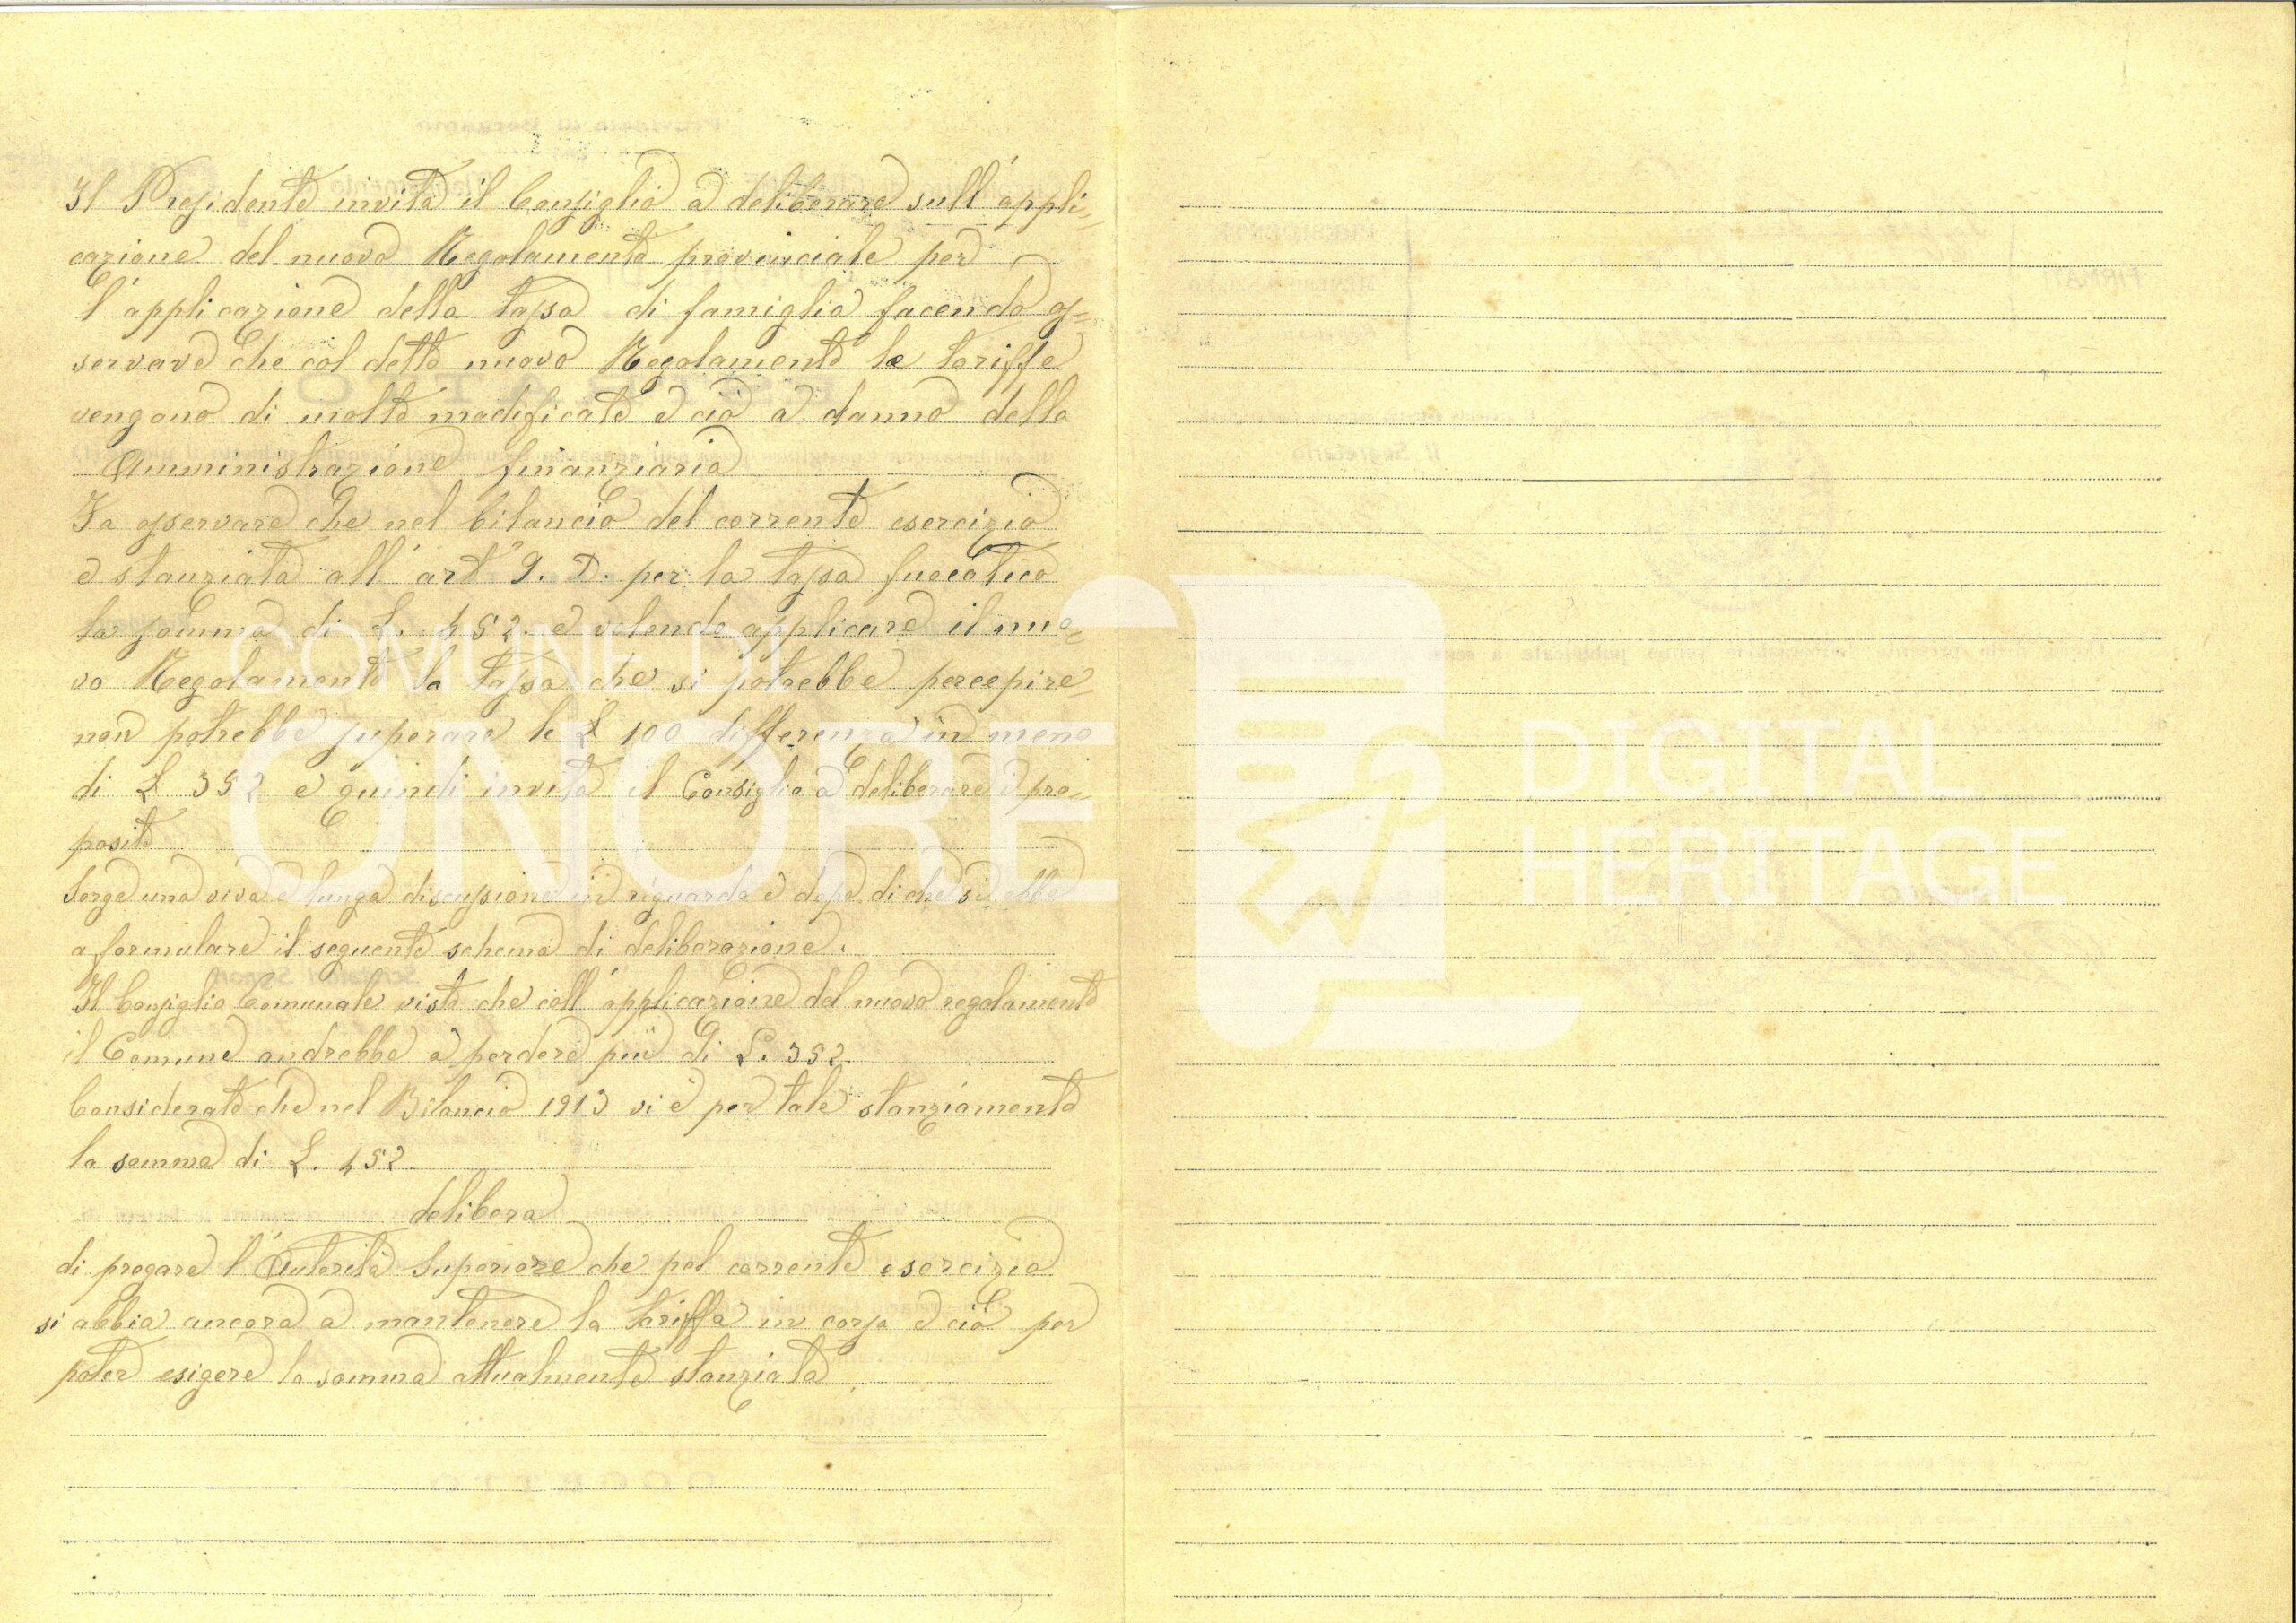 Il Presidente invita il Consiglio a deliberare sull'appli=
cazione del nuovo Regolamento provinciale per
l'applicazione della tassa di famiglia facendo os=
servare che col detto nuovo Regolamento le tariffe
vengono di molto modificate e ciò a danno della
Amministrazione finanziaria
Fa osservare che nel bilancio del corrente esercizio
è stanziata all'art 9. D. per la tassa fuocatico
la somma di L. 452. e volendo applicare il nuo=
vo Regolamento la tassa che si potrebbe percepire
non potrebbe superare le L 100 differenza in meno
di L 352 e quindi invita il Consiglio a deliberare i pro=
posito
Sorge una viva e lunga discussione in riguardo e dopo di che si ebbe
a formulare il seguente schema di deliberazione.
Il Consiglio Comunale visto che coll'applicazione del nuovo regolamento
il Comune andrebbe a perdere più di L. 352.
Considerato che nel Bilancio 1913 vi è per tale stanziamento
la somma di L. 452
delibera
di pregare l'Autorità Superiore che pel corrente esercizio
si abbia ancora a mantenere la tariffa in corso e ciò per
poter esigere la somma attualmente stanziata
COMUNE DI
ONORE
DIGITAL
HERITAGE